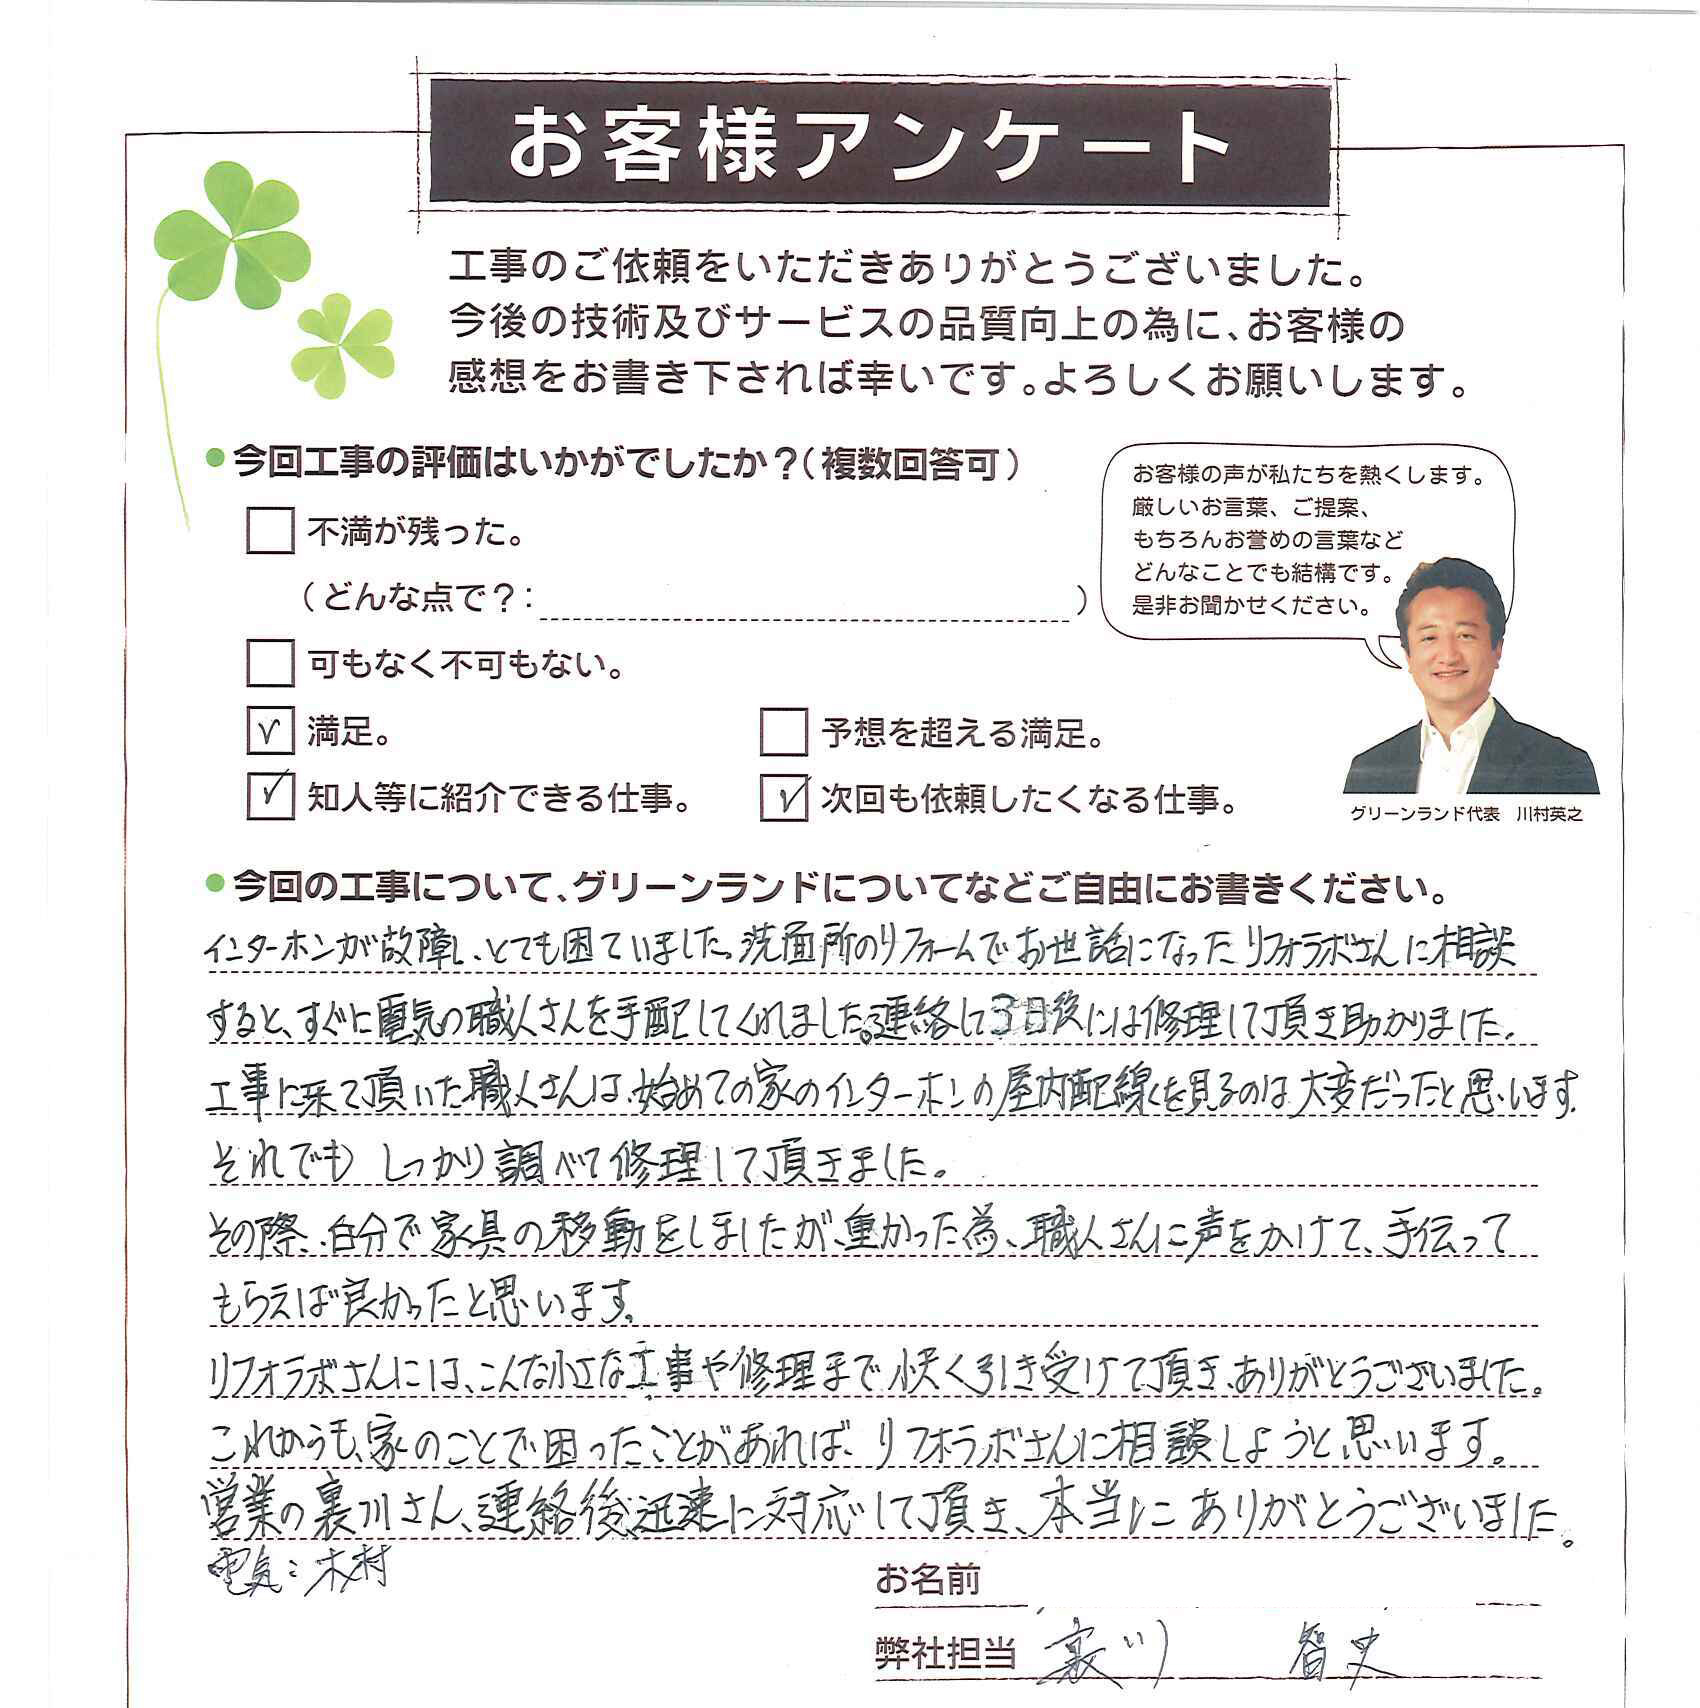 お客様アンケート
工事のご依頼をいただきありがとうございました。
今後の技術及びサービスの品質向上の為に、お客様の
感想をお書き下されば幸いです。よろしくお願いします。
今回工事の評価はいかがでしたか？（複数回答可）
不満が残った。
（どんな点で？：　）
可もなく不可もない。
満足。
予想を超える満足。
知人等に紹介できる仕事。
次回も依頼したくなる仕事。
お客様の声が私たちを熱くします。
厳しいお言葉、ご提案、
もちろんお誉めの言葉など
どんなことでも結構です。
是非お聞かせください。
グリーンランド代表　川村英之
今回の工事について、グリーンランドについてなどご自由にお書きください。
インターホンが故障し、とても困ていました。洗面所のリフォームでお世話になったリフォラボさんに相談
すると、すぐに電気の職人さんを手配してくれました。連絡して3日後には修理して頂き助かりました。
工事に来て頂いた職人さんは、始めての家のインターホンの屋内配線を見るのは大変だったと思います。
それでも しっかり調べて修理して頂きました。
その際、自分で家具の移動をしましたが、重かった為、職人さんに声をかけて、手伝って
もらえば良かったと思います。
リフォラボさんには、こんな小さな工事や修理まで快く引き受けて頂き、ありがとうございました。
これからも、家のことで困ったことがあれば、リフォラボさんに相談しようと思います。
営業の裏川さん、連絡後、迅速に対応して頂き、本当に ありがとうございました。
電気：木村
お名前
弊社担当 裏川 智史